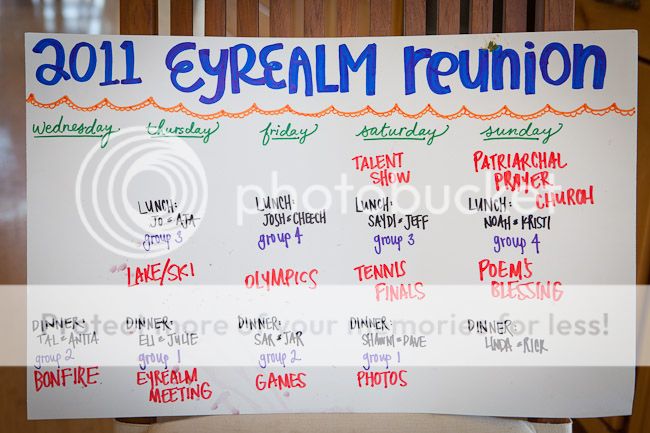 2011 EYREALM reunion
wednesday thursday friday saturday sunday
TALENT
SHOW
PATRIARCHAL
PRAYER
CHURCH
LUNCH:
JO & AJA
group 3
LUNCH:
JOSH & CHEECH
group 4
LUNCH:
SAYDI & JEFF
group 3
LUNCH:
NOAH & KRISTI
group 4
LAKE/SKI
OLYMPICS
TENNIS
FINALS
POEMS
BLESSING
DINNER:
TAL & ANITA
group 2
BONFIRE
DINNER:
ELI & JULIE
group 1
EYREALM
MEETING
DINNER:
SAR & JAR
group 2
GAMES
DINNER:
SHAWNI & DAVE
group 1
PHOTOS
DINNER:
LINDA & RICK
photobucket
Protect more of your memories for less!